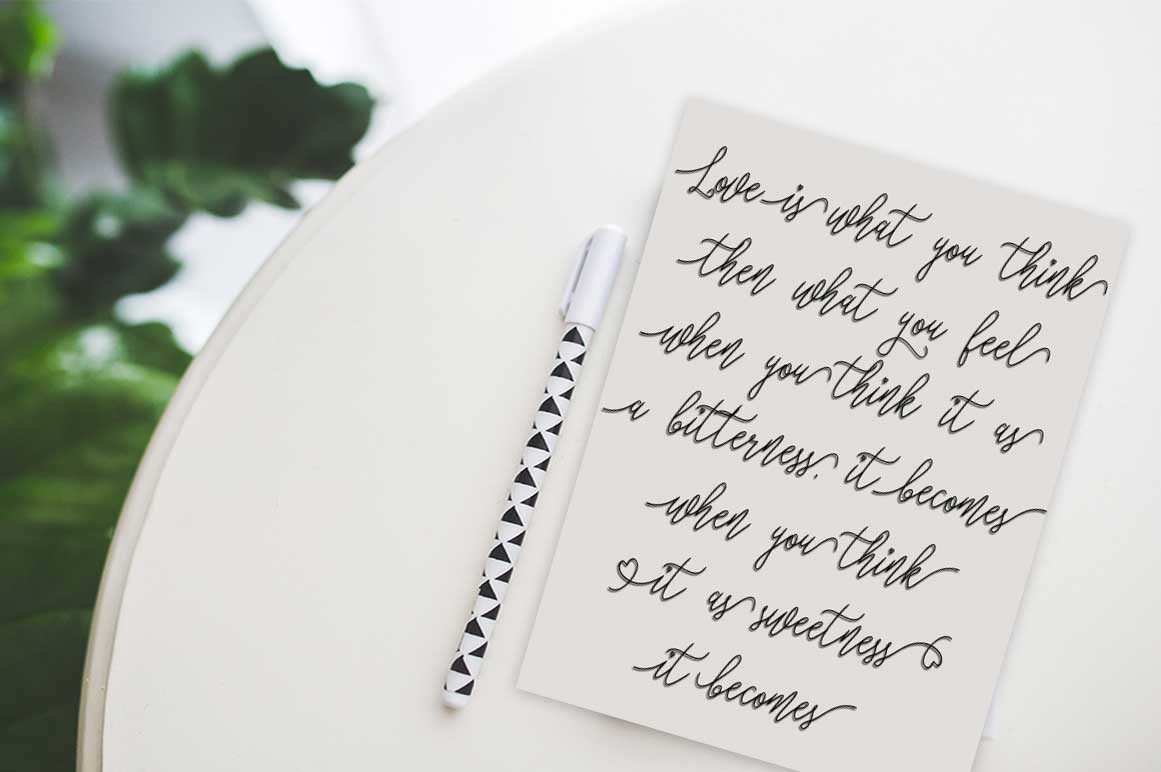 Love is what you think
then what you feel
when you think it as
a bitterness, it becomes
when you think
it as sweetness
it becomes